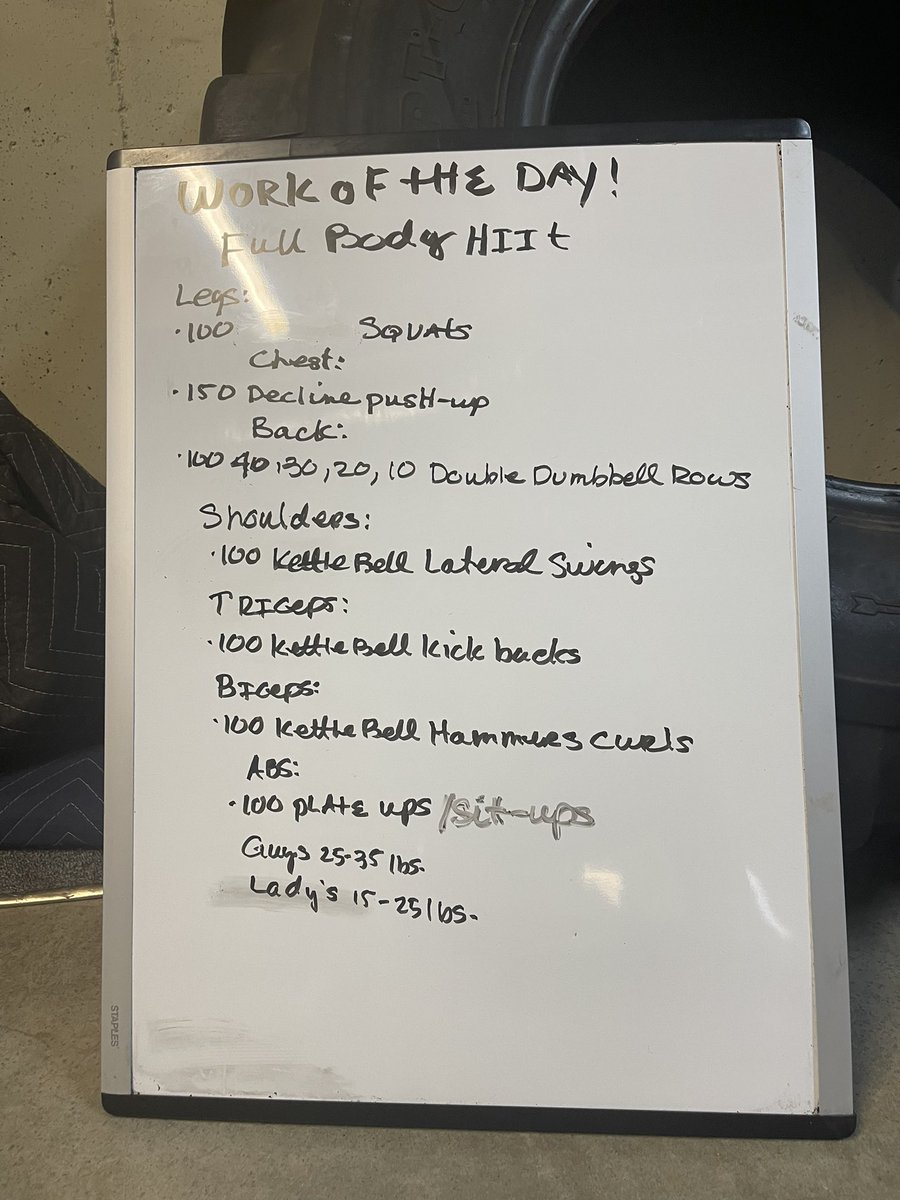 WORK OF THE DAY!
Full Body HIIt
Legs:
·100 SQUAts
Chest:
·150 Decline pusH-up
Back:
·100 40,30,20,10 Double Dumbbell Rows
Shoulders:
·100 Kettle Bell Lateral Swings
TRIceps:
·100 Kettle Bell kick backs
BIceps:
·100 Kettle Bell Hammers curls
ABS:
·100 pLAtE ups /sit-ups
Guys 25-35 lbs.
Lady's 15-25 lbs.
STAPLES